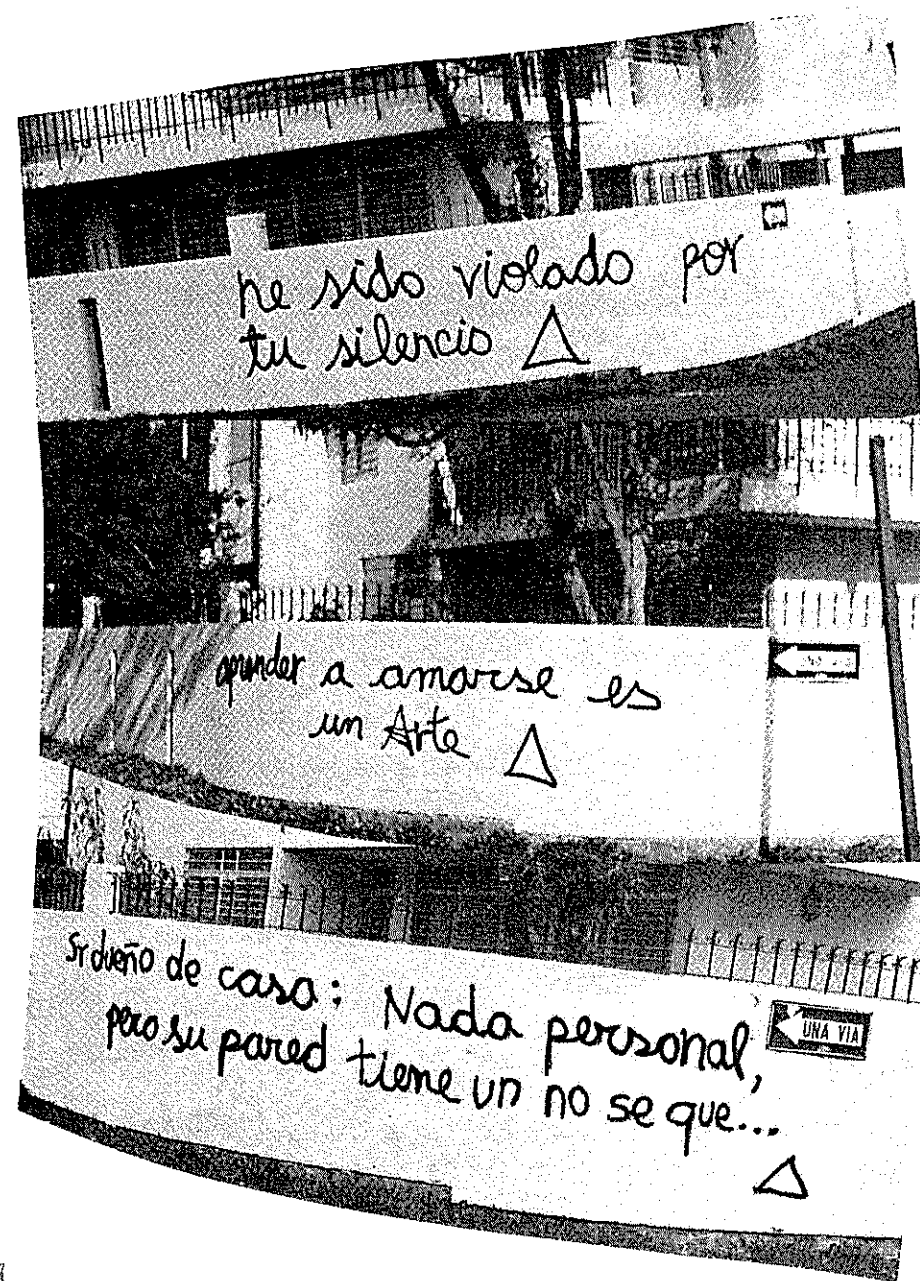 he sido violado por
tu silencio
aprender a amarse es
un Arte
Sr dueño de casa: Nada personal,
pero su pared tiene un no se que...
UNA VIA